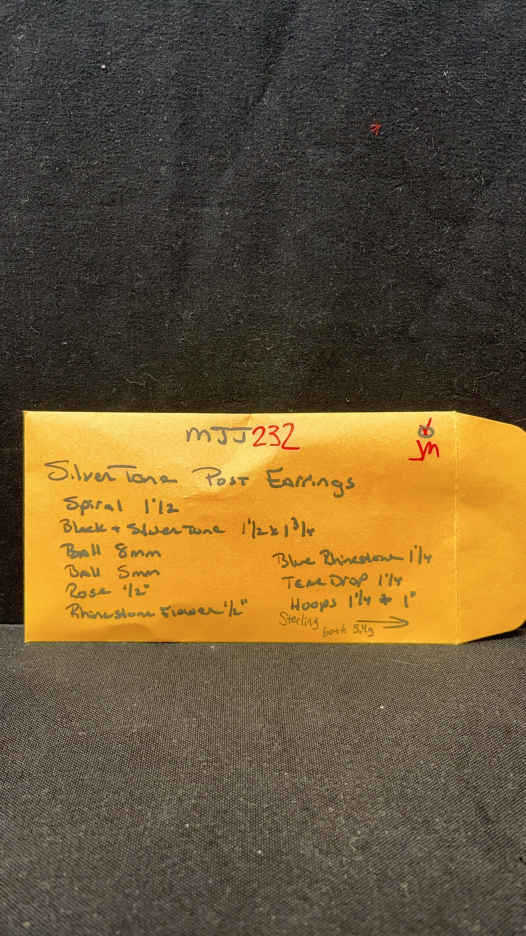 MJJ232
JM
SilverTone Post Earrings
Spiral 1 1/2
Black + SilverTone 1 1/2 x 1 3/4
Ball 8mm
Ball 5mm
Rose 1/2"
Rhinestone Flower 1/2"
Blue Rhinestone 1 1/4
Tear Drop 1 1/4
Hoops 1 1/4 + 1"
Sterling
both 5.4g